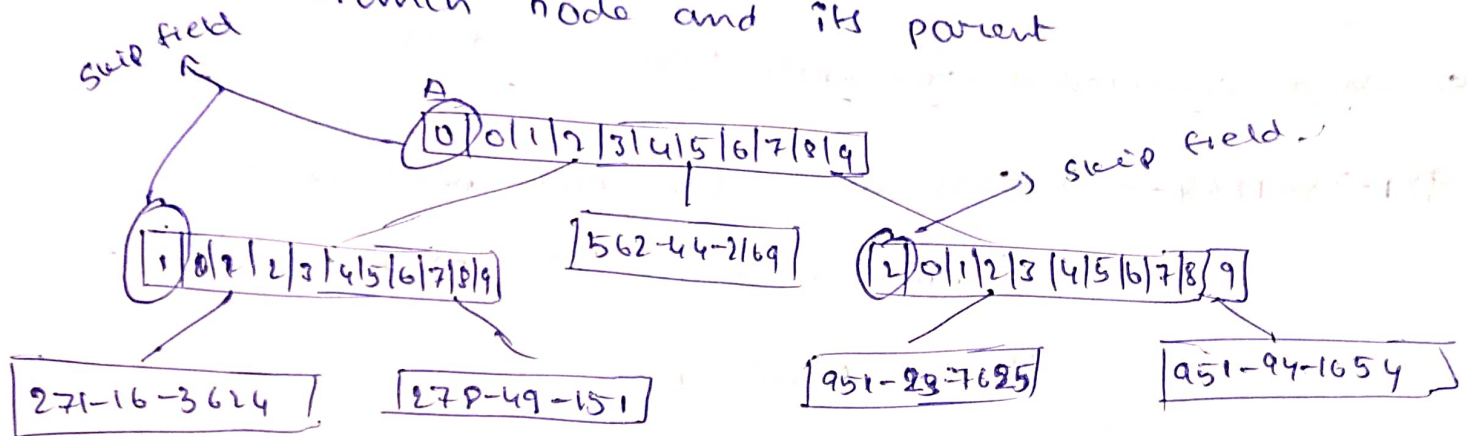 node and its parent
skip field
A
0 0 1 2 3 4 5 6 7 8 9
skip field.
1 0 1 2 3 4 5 6 7 8 9
562-44-2169
2 0 1 2 3 4 5 6 7 8 9
271-16-3624
278-49-151
951-23-7625
951-94-1654